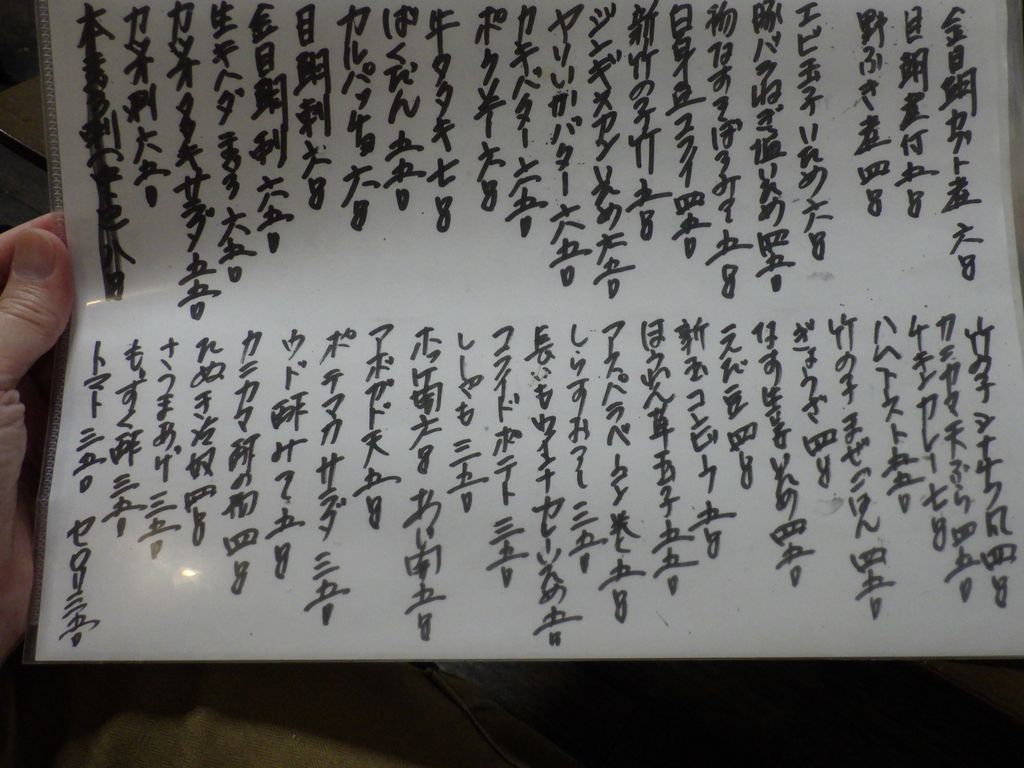 金目鯛カブト煮 六〇
目鯛煮付 五〇
野ふき煮 四〇
エビ玉子いため 六〇
豚バラねぎ塩いため 四五〇
物なすてぽろみそ 五〇
白身立フライ 四五〇
新竹の子竹 五〇
ジンギスカンいため 六五〇
ヤリいかバター 六五〇
カキバター 六五〇
ポークソテー 六〇
牛タタキ 七〇
ばくだん 五五〇
カルパッチョ 六〇
目鯛刺 六〇
金目鯛刺 六五〇
生キハダまぐろ 六五〇
カツオタタキサラダ 五五〇
カツオ刺 六五〇
竹の子シナチク風 四〇
カニカマ天ぷら 四五〇
チキンカレー 七〇
ハムトースト 五五〇
竹の子まぜごはん 四五〇
ぎょうざ 四〇
なす生姜いため 四五〇
えだ豆 四〇
新玉コンビーフ 五〇
ほうれん草玉子 五五〇
アスパラベーコン巻 五〇
しらすおろし 三五〇
長いもウインナカレーいため 五五〇
フライドポテト 三五〇
ししゃも 三五〇
ホッケ開 六〇 あじ開 五〇
アボカド天 五〇
ポテマカサラダ 三五〇
ウド酢みそ 五〇
カニカマ酢の物 四〇
たぬき冷奴 四〇
さつまあげ 三五〇
もずく酢 三五〇
トマト 三五〇 セロリ 三五〇